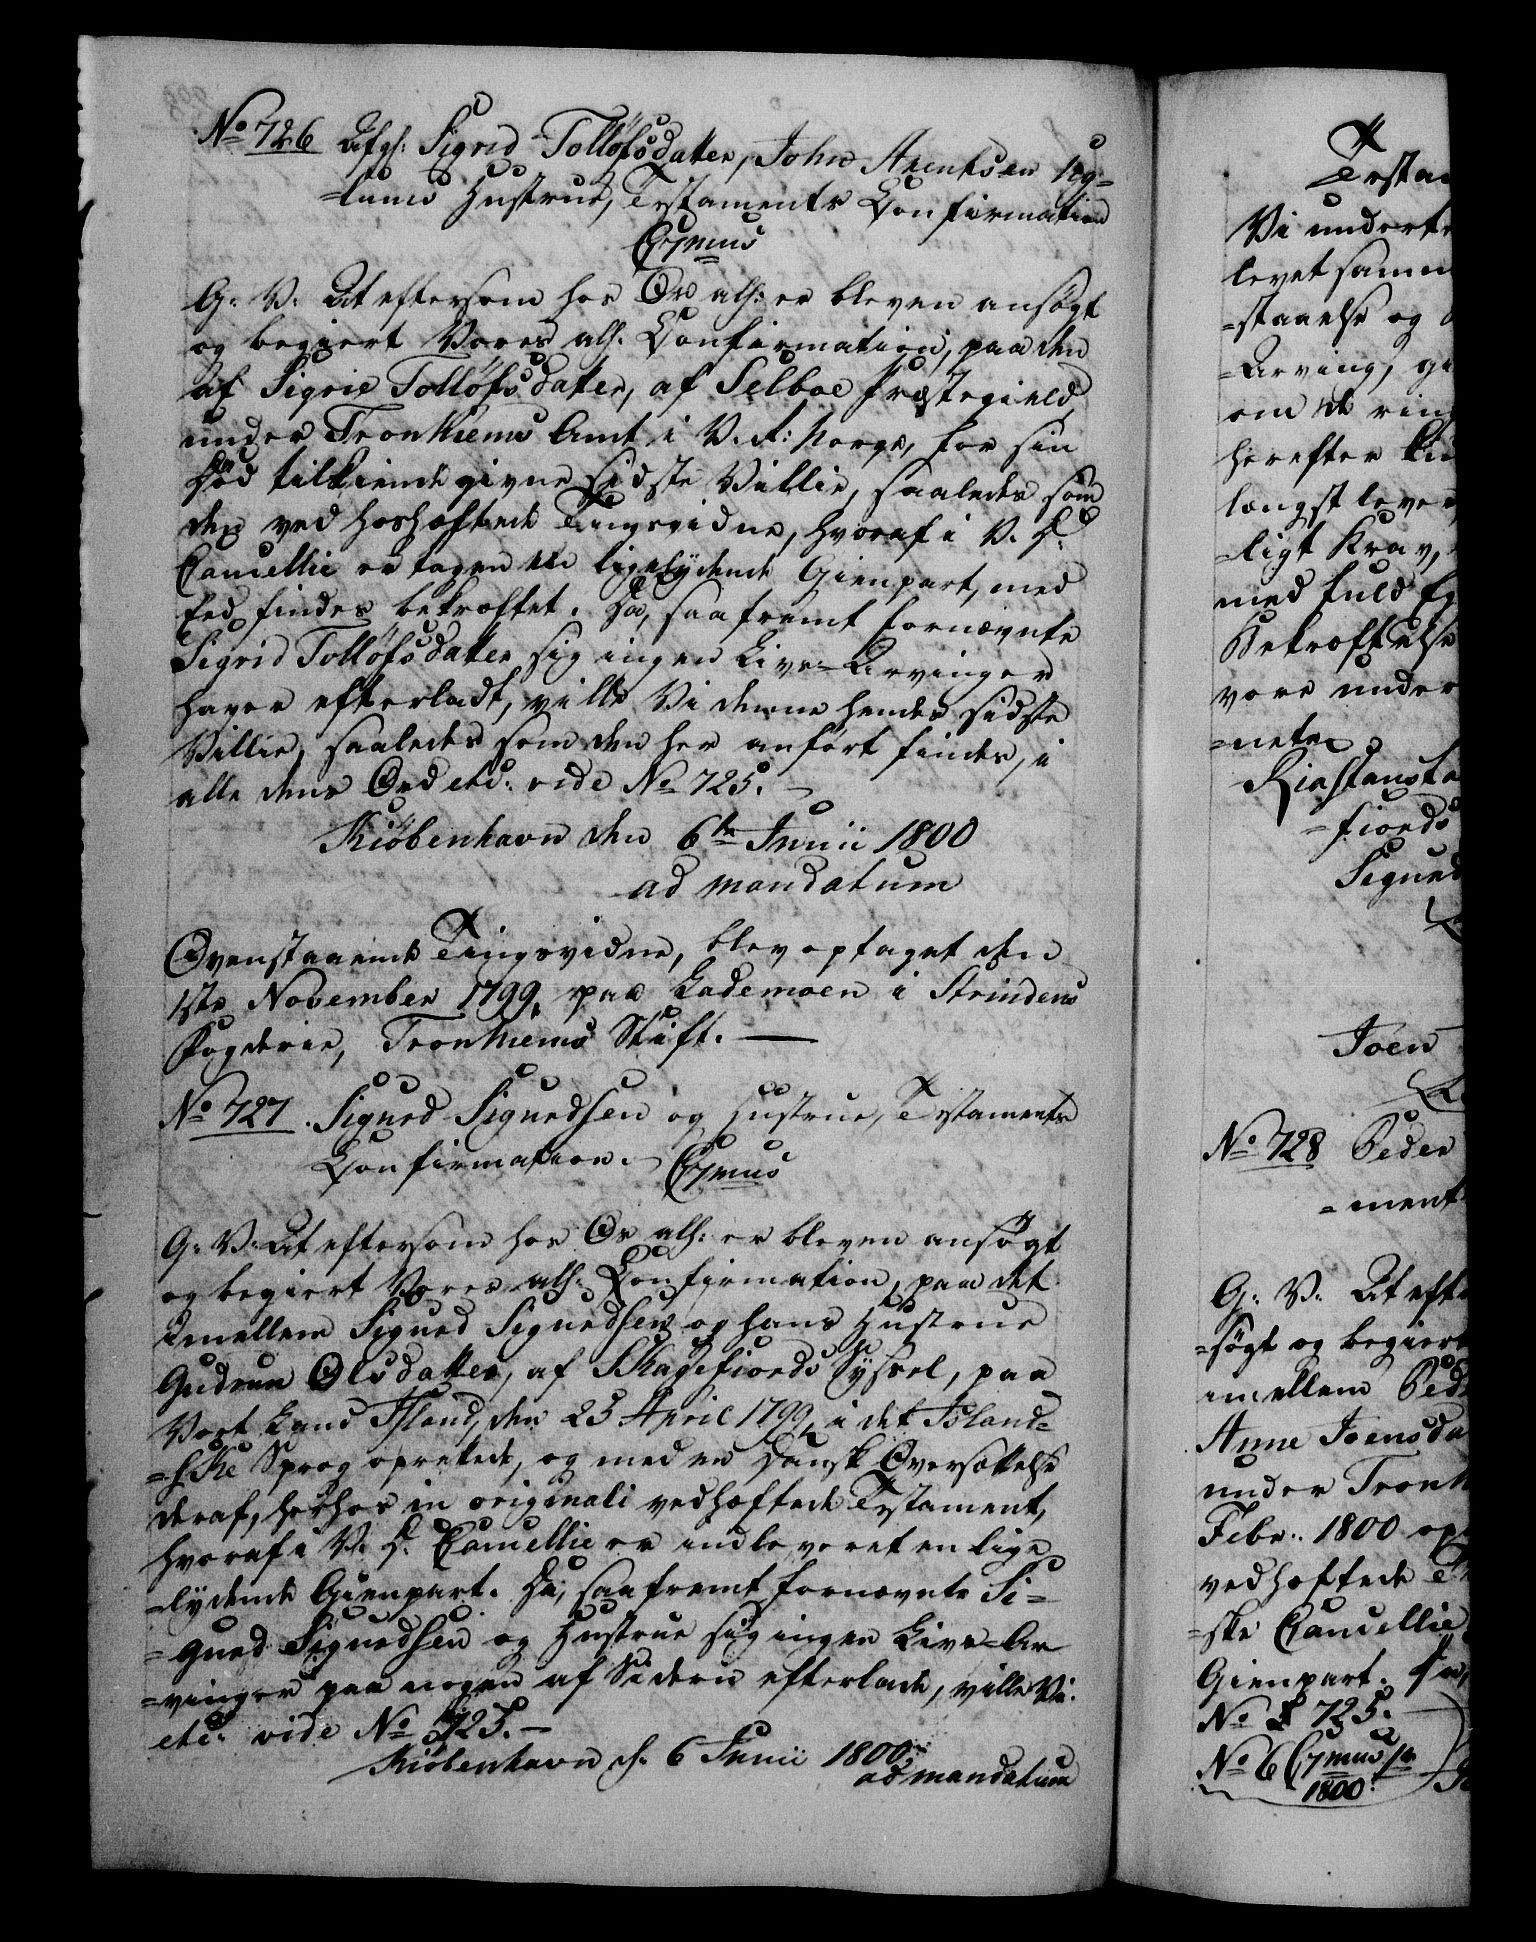 No 726 Afg: Sigrid Tollöfsdatter, John Arentsen
=lums Hustrue, Testaments Confirmation
Gymus
G: V: At eftersom hos Os alh: er bleven ansøgt
og begiert Vores alh. Confirmation, paa den
af Sigrid Tollöfsdatter, af Selboe Præstegield
under Tronhiems Amt i V. R: Norge, for sin
Död tilkiende givne sidste Villie, saaledes som
den ved hoshæftede Tingsvidne, hvoraf i V. D.
Cancellie er tagen en ligelydende Gienpart, med
Eed findes bekræftet. Da, saafremt fornævnte
Sigrid Tollöfsdatter sig ingen Livs=Arvinger
haver efterladt, ville Vi denne hendes sidste
Villie, saaledes som den her anført findes, i
alle dens Ord etc: vide No 725.
Kiöbenhavn den 6te Junii 1800
ad mandatum
Ovenstaaende Tingsvidne, blev optaget den
1ste November 1799, paa Lademoen i Strindens
Fogderie, Tronhiems Stift.
No 727. Sigurd Sigurdsen og Hustrue, Testaments
Confirmation. Gymus
G: V: At eftersom hos Os alh: er bleven ansøgt
og begiert Vores alh: Confirmation, paa det
imellem Sigurd Sigurdsen og hans Hustrue
Gudrun Olsdatter, af Skagefiords Syssel, paa
Vort Land Island, den 23 April 1799, i det Island=
=ske Sprog oprettede, og med en Dansk Oversættelse
deraf, herhos in originali vedhæftede Testament,
hvoraf i V. D. Cancellie er indleveret en lige
=lydende Gienpart. Da, saafremt fornævnte Si=
=gurd Sigurdsen og Hustrue sig ingen Livs=Ar
=vinger paa nogen af Siderne efterlade, ville Vi.
etc: vide No 725.
Kiöbenhavn d. 6 Junii 1800
ad mandatum
Vi
levet
=staaelse og
=Arving,
om de
herefter
længst
=ligt Krav,
med fuld
Bekræftelse
vore under
=nete
=fiords
Sigurd
Joen
No 728 Peder
=ment
G: V. At eft
=søgt og begiert
imellem Ped
Anne Joensda
under Tronh
Febr: 1800 op
vedhæftede
=ske Cancellie
Gienpart.
No 725.
No 6 Gymus
1800